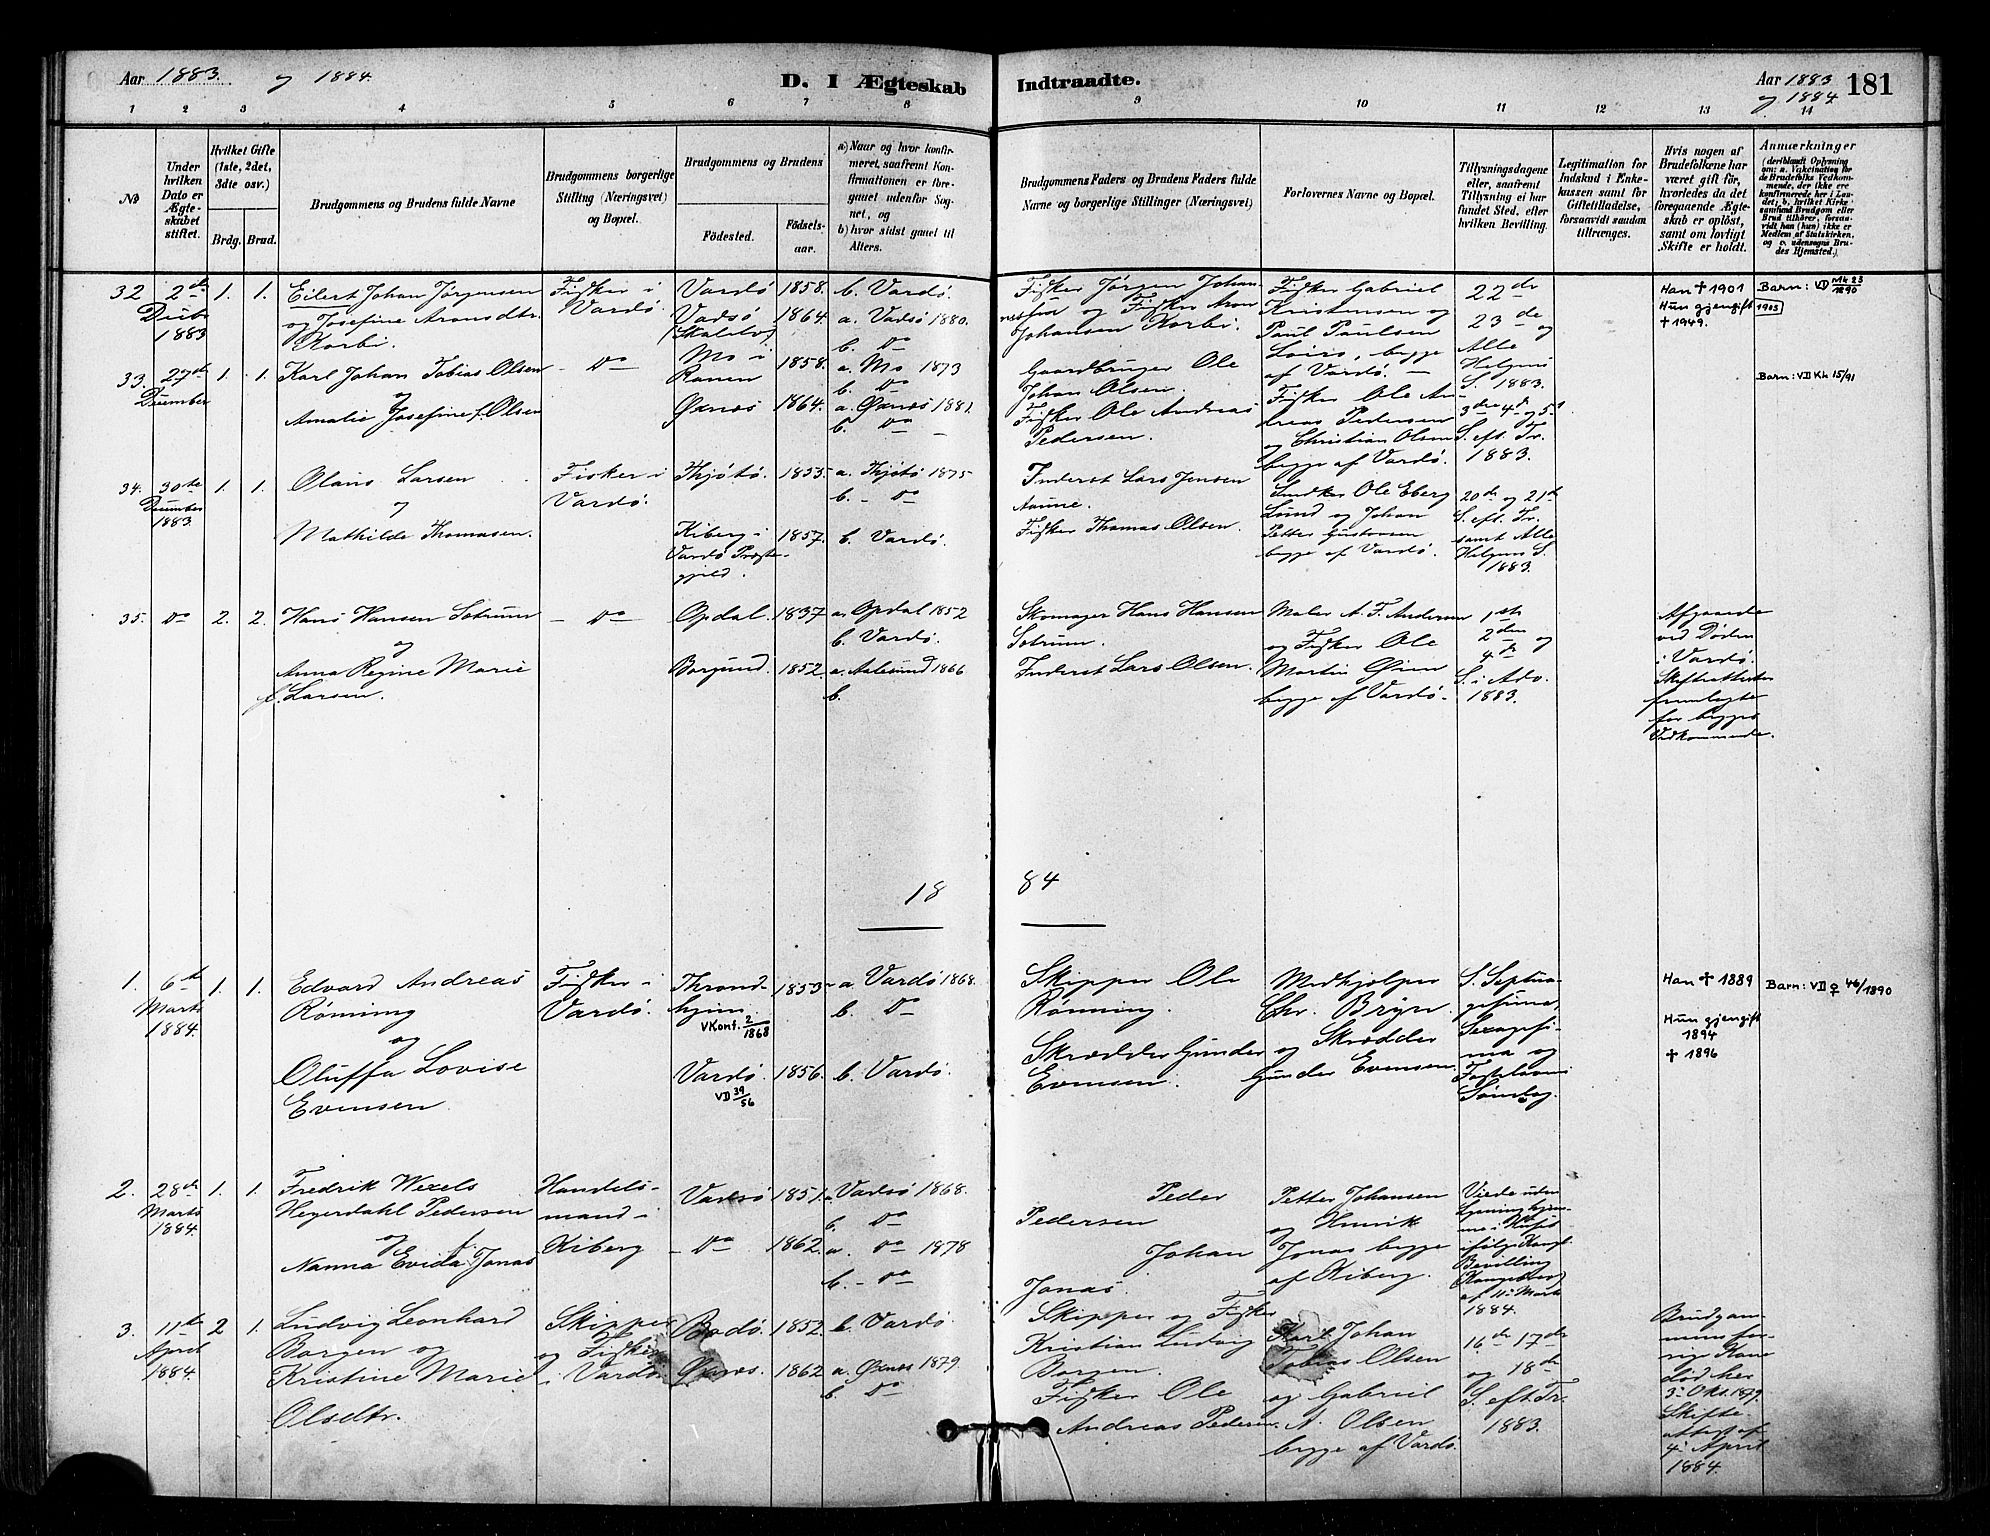 Aar 1883. og 1884.
D. I Ægteskab Indtraadte.
Aar 1883 og 1884. 181
1 2 3 4 5 6 7 8 9 10 11 12 13 14
No
Under hvilken Dato er Ægteskabet stiftet.
Hvilket Gifte (1ste, 2det, 3dte osv.)
Brdg. Brud.
Brudgommens og Brudens fulde Navne
Brudgommens borgerlige Stilling (Næringsvei) og Bopæl.
Brudgommens og Brudens
Fødested.
Fødselsaar.
a) Naar og hvor konfirmeret, saafremt Konfirmationen er foregaaet udenfor Sognet, og
b) hvor sidst gaaet til Alters.
Brudgommens Faders og Brudens Faders fulde Navne og borgerlige Stillinger (Næringsvei)
Forlovernes Navne og Bopæl.
Tillysningsdagene eller, saafremt Tillysning ei har fundet Sted, efter hvilken Bevilling.
Legitimation for Indskud i Enkekassen samt for Giftetilladelse, forsaavidt saadan tiltrænges.
Hvis nogen af Brudefolkene har været gift før, hvorledes da det foregaaende Ægteskab er opløst, samt om lovligt Skifte er holdt.
Anmærkninger
(deriblandt Oplysning om: a. Vakcination for de Brudefolks Vedkommende, der ikke ere konfirmerede her i Landet; b. hvilket Kirkesamfund Brudgom eller Brud tilhører, forsaavidt han (hun) ikke er Medlem af Statskirken, og c. udensogns Brudes Hjemsted.)
32 2de Decbr 1883 1. 1.
Eilert Johan Jørgensen
og Josefine Aronsdtr.
Korbi.
Fisker i
Vardø.
Vardø 1858. b. Vardø.
Vadsø 1864. a. Vadsø 1880.
b. Do
Fisker Jørgen Johannessen og Fisker Aron
Johansen Korbi.
Fisker Gabriel
Kristensen og
Paul Paulsen
begge
af Vardø.
22de
23de og
Alle
Helgens
S. 1883.
Han † 1901
Hun gjengift
† 1949.
Barn: VD Mk 23/1890
1905
33. 27de December 1. 1.
Karl Johan Tobias Olsen
og
Amalie Josefine f. Olsen
Do
Mo i
Ranen 1858. a. Mo 1873
b. Do
Øxnæs 1864. a. Øxnæs 1881.
b. Do
Gaardbruger Ole
Johan Olsen.
Fisker Ole Andreas
Pedersen.
Fisker Ole Andreas Pedersen
og Christian Olsen
begge af Vardø.
3die 4de og 5te
S. eft. Tr.
1883.
Barn: VD Kk 15/91
34. 30te December 1883. 1. 1.
Olaus Larsen
og
Mathilde Thomasen.
Fisker i
Vardø.
Thjøtø. 1855. a. Thjøtø 1875
b. Do
Kiberg i
Vardø Præstegjeld. 1857. b. Vardø.
Inderst Lars Jensen
Fisker Thomas Olsen.
Snedker Ole Eberg
Lund og Johan
Petter Gustavsen
begge af Vardø.
20de og 21de
S. eft. Tr.
samt Alle
Helgens S.
1883.
35. Do 2. 2.
Hans Hansen Sotrum
og
Anna Regine Marie
f. Larsen.
Do
Opdal. 1837 a. Opdal 1852
b. Vardø.
Borgund. 1852. a. Aalesund 1866
b.
Skomager Hans Hansen
Sotrum.
Inderst Lars Olsen.
Maler A. F. Andersen
og Fisker Ole
Martin Øien
begge af Vardø.
1ste
2den og
4de
S. i Adv.
1883.
Afgaaede
ved Døden
i Vardø.
Skifteattester
fremlagte
for begges
Vedkommende.
18 84
1. 6te Marts 1884. 1. 1.
Edvard Andreas
Rønning
og
Oluffa Lovise
Evensen
Fisker i
Vardø.
Throndhjem. 1853 a. Vardø 1868.
VKonf. 2/1868
b. Do
Vardø. 1856. b. Vardø.
VD 39/56
Skipper Ole
Rønning.
Skrædder Gunder
Evensen.
Medhjelper
Chr. Bryn
og Skrædder
Gunder Evensen.
S. Septuagesima,
Sexagesima og
Fastelavns
Søndag.
Han † 1889
Hun gjengift
1894
† 1896
Barn: VD ♀ 46/1890
2. 28de Marts 1884. 1. 1.
Fredrik Wexels
Heyerdahl Pedersen
og
Nanna Evida f. Jonas
Handelsmand i
Kiberg
Vadsø 1851. a. Vadsø 1868.
b. Do
Do 1862. a. Do 1878
b. Do
Peder
Pedersen
Johan
Jonas.
Petter Johansen
og Henrik
Jonas begge
af Kiberg.
Viede uden
Lysning hjemme i Huset
ifølge Kongl.
Bevilling
(Kongebrev)
af 11te Marts
1884.
3. 11te April 1884. 2 1.
Ludvig Leonhard
Borgen og
Kristine Marie
Olsdtr.
Skipper
og Fisker
i Vardø
Bodø. 1852. b. Vardø.
Øxnæs. 1862 a. Øxnæs 1879.
b. Do
Skipper og Fisker
Kristian Ludvig
Borgen.
Fisker Ole
Andreas Pedersen.
Karl Johan
Tobias Olsen
og Gabriel
A. Olsen
begge af Vardø.
16de 17de
og 18de
S. eft. Tr.
1883.
Brudgommens forrige Kone
død her
3. Okt. 1879.
Skifteattest af
4. April
1884.